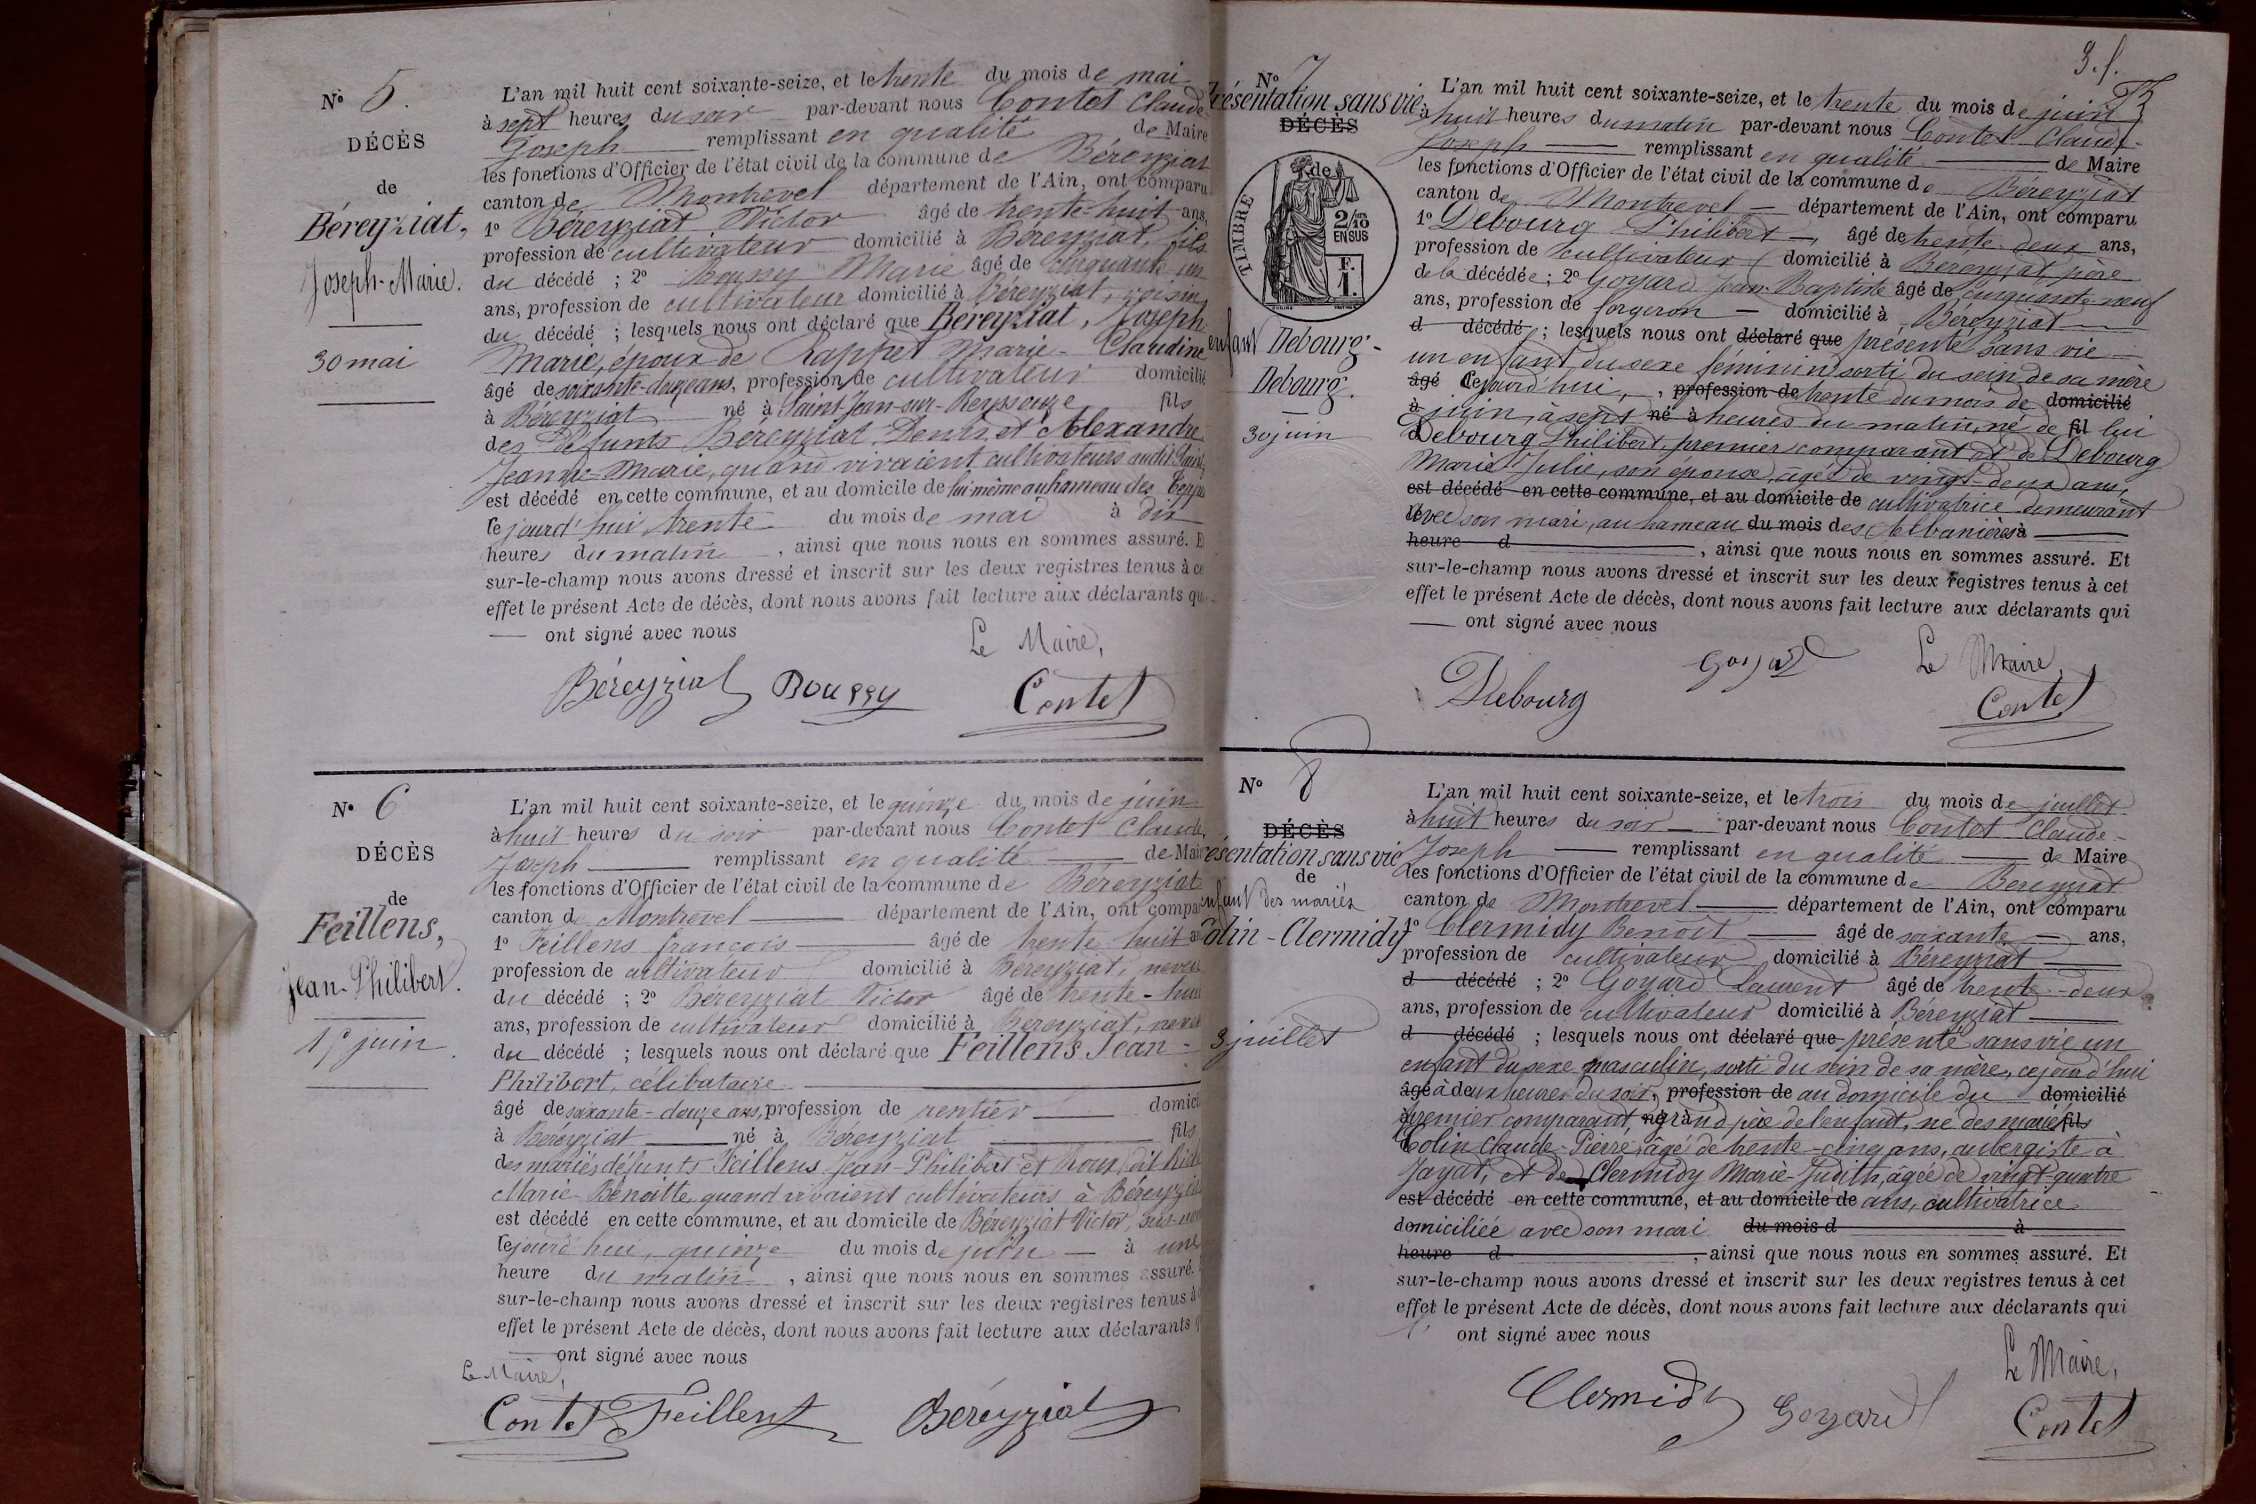 N° 5.
DÉCÈS
de
Béreyziat,
Joseph-Marie.
30 mai
L'an mil huit cent soixante-seize, et le trente du mois de mai
à sept heures du soir par-devant nous Contet Claude
Joseph remplissant en qualité de Maire
les fonctions d'Officier de l'état civil de la commune de Béreyziat
canton de Montrevel département de l'Ain, ont comparu
1° Béreyziat Victor âgé de trente-huit ans,
profession de cultivateur domicilié à Béreyziat, fils
du décédé ; 2° Boussy Marie âgé de cinquante un
ans, profession de cultivateur domicilié à Béreyziat, voisin
du décédé ; lesquels nous ont déclaré que Béreyziat, Joseph
Marie, époux de Rappet Marie-Claudine
âgé de soixante-douze ans, profession de cultivateur domicilié
à Béreyziat né à Saint Jean-sur-Reyssouze fils
des défunts Béreyziat Denis et Alexandre
Jeanne-Marie, quand vivaient cultivateurs audit Saint
est décédé en cette commune, et au domicile de lui-même au hameau des
cejourd'hui trente du mois de mai à dix
heures du matin, ainsi que nous nous en sommes assuré. E
sur-le-champ nous avons dressé et inscrit sur les deux registres tenus à ce
effet le présent Acte de décès, dont nous avons fait lecture aux déclarants qu
ont signé avec nous
Le Maire,
Béreyziat Boussy Contet
N° 6
DÉCÈS
de
Feillens,
Jean-Philibert.
15 juin
L'an mil huit cent soixante-seize, et le quinze du mois de juin
à huit heures du soir par-devant nous Contet Claude
Joseph remplissant en qualité de Mair
les fonctions d'Officier de l'état civil de la commune de Béreyziat
canton de Montrevel département de l'Ain, ont compar
1° Feillens françois âgé de trente huit a
profession de cultivateur domicilié à Béreyziat, neveu
du décédé ; 2° Béreyziat Victor âgé de trente-huit
ans, profession de cultivateur domicilié à Béreyziat, neveu
du décédé ; lesquels nous ont déclaré que Feillens Jean-
Philibert, célibataire
âgé de soixante-douze ans, profession de rentier domici
à Béreyziat né à Béreyziat fils
des mariés défunts Feillens Jean-Philibert et Roux dit
Marie-Benoitte, quand vivaient cultivateurs à Béreyzia
est décédé en cette commune, et au domicile de Béreyziat Victor,
cejourd'hui, quinze du mois de juin à une
heure du matin, ainsi que nous nous en sommes assuré.
sur-le-champ nous avons dressé et inscrit sur les deux registres tenus à
effet le présent Acte de décès, dont nous avons fait lecture aux déclarants q
ont signé avec nous
Le Maire,
Contet Feillens Béreyziat
3. f.
N° 7
Présentation sans vie
DÉCÈS
de
TIMBRE
2/10
EN SUS
F.
1.
enfant Debourg-
Debourg.
30 juin
L'an mil huit cent soixante-seize, et le trente du mois de juin
à huit heures du matin par-devant nous Contet Claude
Joseph remplissant en qualité de Maire
les fonctions d'Officier de l'état civil de la commune de Béreyziat
canton de Montrevel département de l'Ain, ont comparu
1° Debourg Philibert, âgé de trente-deux ans,
profession de cultivateur domicilié à Béreyziat, père
de la décédée ; 2° Goyard Jean-Baptiste âgé de cinquante-neuf
ans, profession de forgeron domicilié à Béreyziat
d décédé ; lesquels nous ont déclaré que présenté sans vie
un enfant du sexe féminin sorti du sein de sa mère
âgé cejourd'hui, profession de trente du mois de domicilié
à juin, à sept né à heures du matin, né de fil lui
Debourg Philibert, premier comparant et de Debourg
Marie Julie, son épouse, âgée de vingt-deux ans,
est décédé en cette commune, et au domicile de cultivatrice demeurant
avec son mari, au hameau du mois des Albanières à
heure d, ainsi que nous nous en sommes assuré. Et
sur-le-champ nous avons dressé et inscrit sur les deux registres tenus à cet
effet le présent Acte de décès, dont nous avons fait lecture aux déclarants qui
ont signé avec nous
Le Maire,
Debourg Goyard Contet
N° 8
DÉCÈS
résentation sans vie
de
enfant des mariés
Colin-Clermidy
3 juillet
L'an mil huit cent soixante-seize, et le trois du mois de juillet
à huit heures du soir par-devant nous Contet Claude-
Joseph remplissant en qualité de Maire
les fonctions d'Officier de l'état civil de la commune de Béreyziat
canton de Montrevel département de l'Ain, ont comparu
1° Clermidy Benoît âgé de soixante ans,
profession de cultivateur domicilié à Béreyziat
d décédé ; 2° Goyard Laurent âgé de trente-deux
ans, profession de cultivateur domicilié à Béreyziat
d décédé ; lesquels nous ont déclaré que présenté sans vie un
enfant du sexe masculin, sorti du sein de sa mère, cejourd'hui
âgé à deux heures du soir, profession de au domicile du domicilié
à premier comparant, né à grand père de l'enfant, né des mariés fils
Colin Claude-Pierre, âgé de trente-cinq ans, aubergiste à
Jayat, et de Clermidy Marie-Judith, âgée de vingt-quatre
est décédé en cette commune, et au domicile de ans, cultivatrice
domiciliée avec son mari du mois d à
heure d, ainsi que nous nous en sommes assuré. Et
sur-le-champ nous avons dressé et inscrit sur les deux registres tenus à cet
effet le présent Acte de décès, dont nous avons fait lecture aux déclarants qui
ont signé avec nous
Le Maire,
Clermidy Goyard Contet